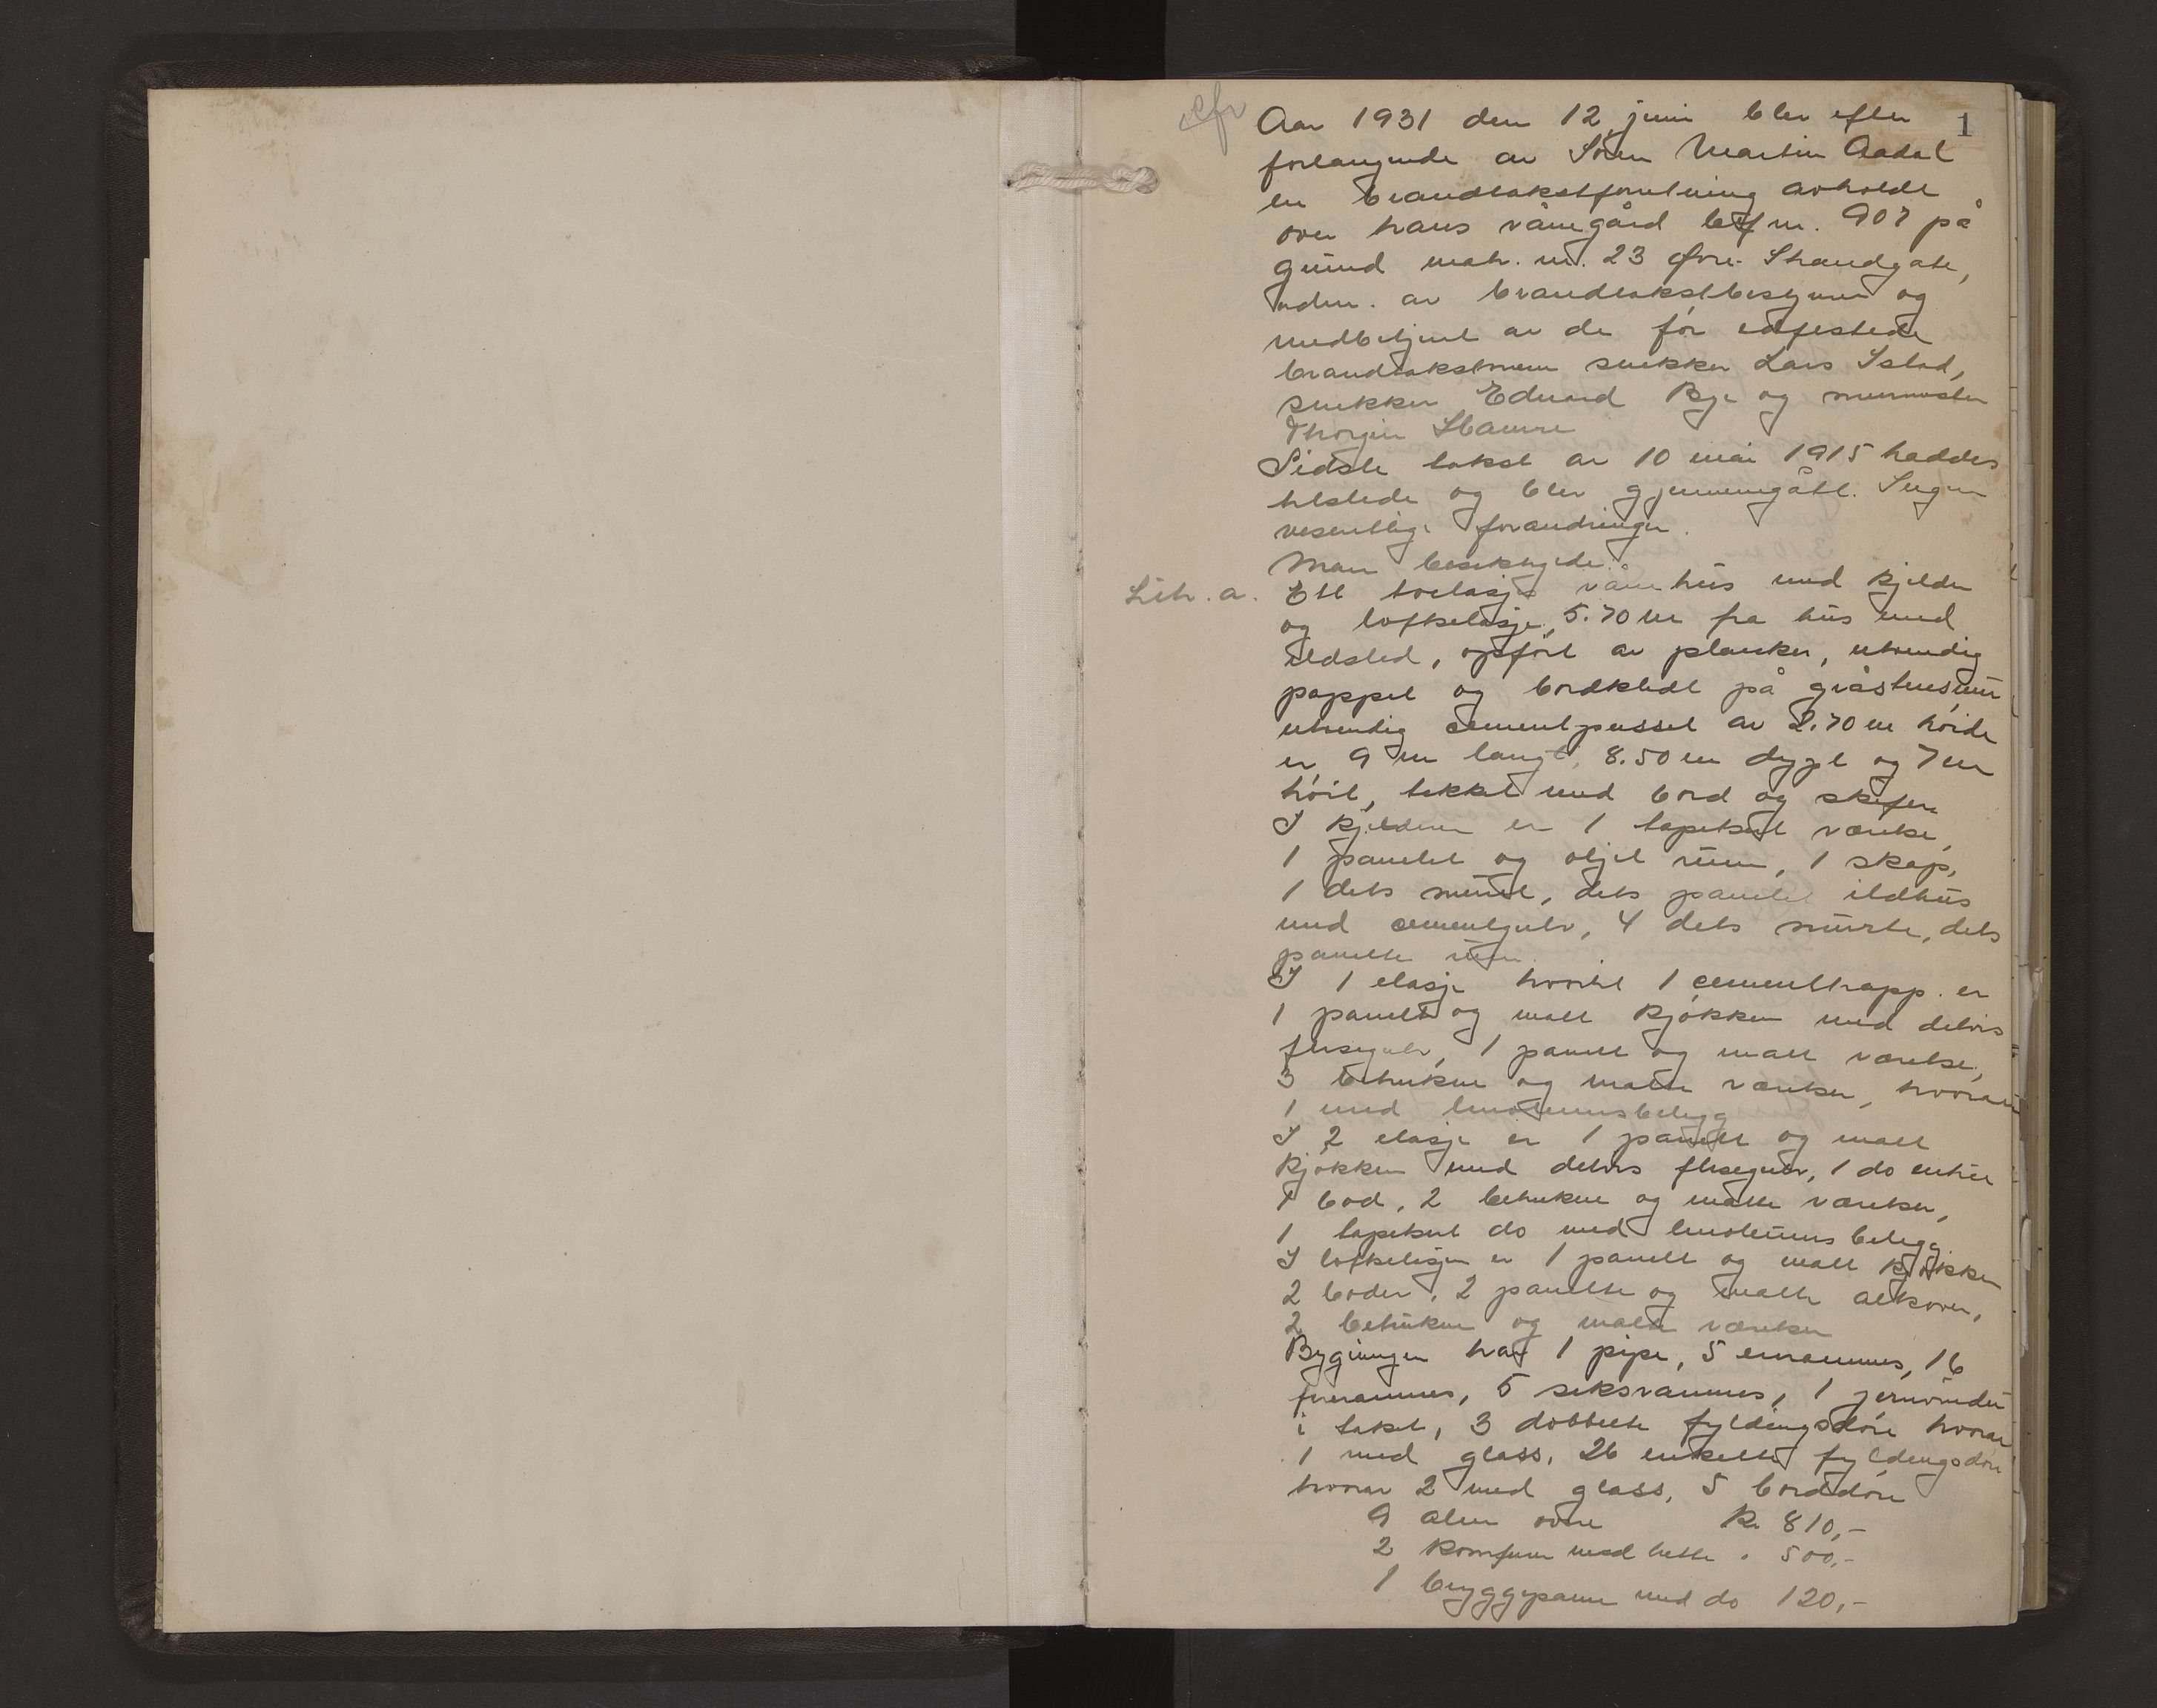 cfr
1
Aar 1931 den 12 juni blev efter
forlangende av Sören Martin Aadal
en brandtakstforretning avholdt
over hans våningård brf nr. 907 på
grund matr. nr. 23 Øvre Strandgate,
adm. av brandtakstbestyrer og
medbetjent av de för edfestede
brandtakstmenn snekker Lars Istad,
snekker Edvard Bye og murmester
Thorgeir Hamre
Sidste takst av 10 mai 1915 haddes
tilstede og blev gjennemgått. Ingen
vesentlige forandringer.
Man besiktigede:
Lit. a. Ett toetasjes våningshus med kjelder
og loftsetasje, 5.70 m fra hus med
ildsted, opfört av planker, utvendig
pappet og bordkledt på gråstensmur
utvendig cementpusset av 2.70 m höide
er 9 m langt, 8.50 m dypt og 7 m
höit, tekket med bord og skifer.
I kjelderen er 1 tapetsert værelse,
1 panelet og oljet rum, 1 skap,
1 dels muret, dels panelet ildhus
med cementgulv, 4 dels murte, dels
panelte rum.
I 1 etasje hvortil 1 cementtrapp er
1 panelt og malt kjökken med delvis
flisegulv, 1 panelt og malt værelse,
3 betrukne og malte værelser, hvorav
1 med linoleumsbelegg
I 2 etasje er 1 panelt og malt
kjökken med delvis flisegulv, 1 do entrée
1 bod, 2 betrukne og malte værelser,
1 tapetsert do med linoleums belegg.
I loftsetasjen er 1 panelt og malt kjökken
2 boder, 2 panelte og malte alkover,
2 betrukne og malte værelser
Bygningen har 1 pipe, 5 enrammes, 16
firerammes, 5 seksrammes, 1 jernvindu
i taket, 3 dobbelte fyldingsdöre hvorav
1 med glass, 26 enkelte fyldingsdöre
hvorav 2 med glass, 5 borddöre
9 alm ovne Kr 810,-
2 komfurer med hette " 500,-
1 bryggepanne med do 120,-